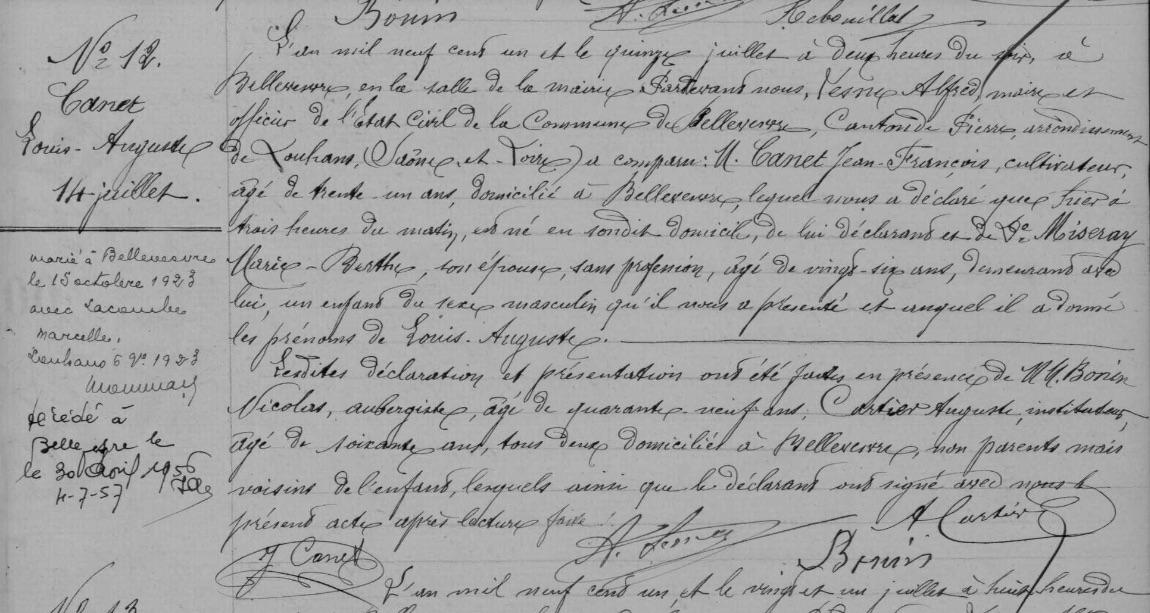 Bonin A. Lesne Rebouillat
Nº 12.
Canet
Louis-Auguste
14 juillet.
marié à Bellevesvre
le 15 octobre 1923
avec Lacombe
Marcelle.
Louhans 6 9re 1923
décédé à
Bellevesvre le
le 30 avril 1956
4-7-57
L'an mil neuf cent un et le quinze juillet à deux heures du soir, à
Bellevesvre, en la salle de la mairie Pardevant nous, Lesne Alfred, maire et
officier de l'Etat Civil de la Commune de Bellevesvre, Canton de Pierre, arrondissement
de Louhans, (Saône-et-Loire) a comparu: M. Canet Jean-François, cultivateur,
âgé de trente-un ans, domicilié à Bellevesvre, lequel nous a déclaré que hier à
trois heures du matin, est né en sondit domicile, de lui déclarant et de De Miseray
Marie-Berthe, son épouse, sans profession, âgé de vingt-six ans, demeurant avec
lui, un enfant du sexe masculin qu'il nous a présenté et auquel il a donné
les prénoms de Louis-Auguste.
Lesdites déclaration et présentation ont été faites en présence de MM. Bonin
Nicolas, aubergiste, âgé de quarante-neuf ans, Cartier Auguste, instituteur,
âgé de soixante ans, tous deux domiciliés à Bellevesvre, non parents mais
voisins de l'enfant, lesquels ainsi que le déclarant ont signé avec nous le
présent acte après lecture faite.
J Canet A. Lesne Bonin A Cartier
L'an mil neuf cent un, et le vingt et un juillet à huit heures du
Nº 13